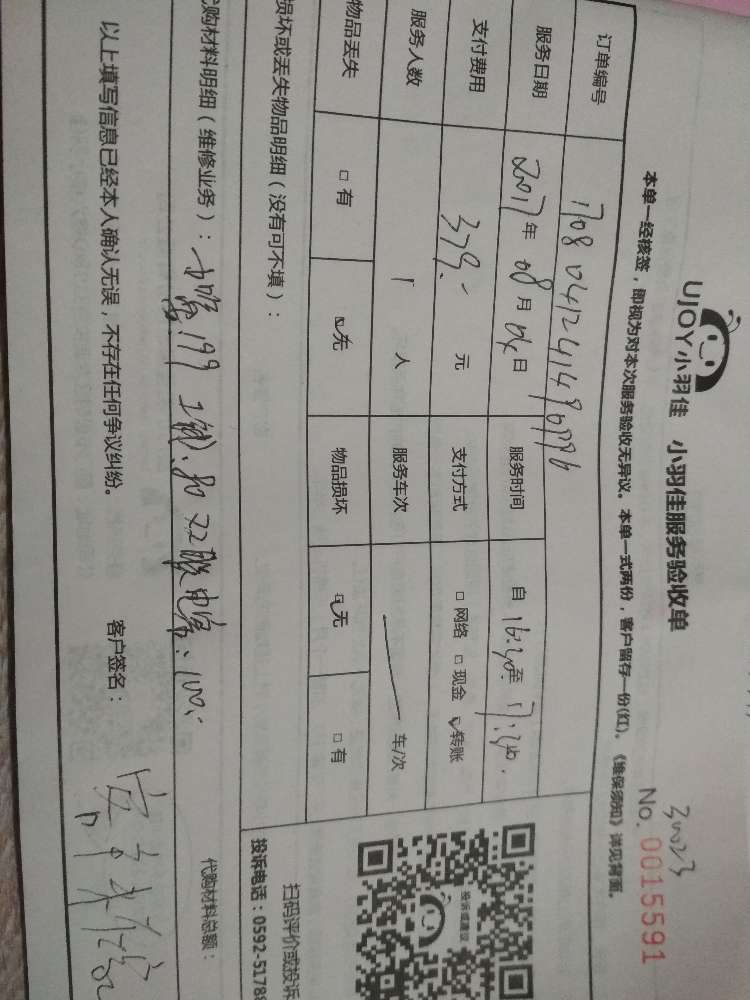 UJOY小羽佳 小羽佳服务验收单
No. 0015591
本单一经核签，即视为对本次服务验收无异议。本单一式两份，客户留存一份(红)。《维保须知》详见背面。
订单编号
服务日期 2017年 08月 04日 服务时间 自 至
支付费用 379. 元 支付方式 □ 网络 □ 现金 ☑ 转账
服务人数 1 人 服务车次 车/次
物品丢失 □ 有 ☑ 无 物品损坏 ☑ 无 □ 有
损坏或丢失物品明细（没有可不填）：
扫码评价或投诉
投诉或建议
投诉电话：0592-5178
代购材料明细（维修业务）： 199 80 100
代购材料总额：
以上填写信息已经本人确认无误，不存在任何争议纠纷。 客户签名：